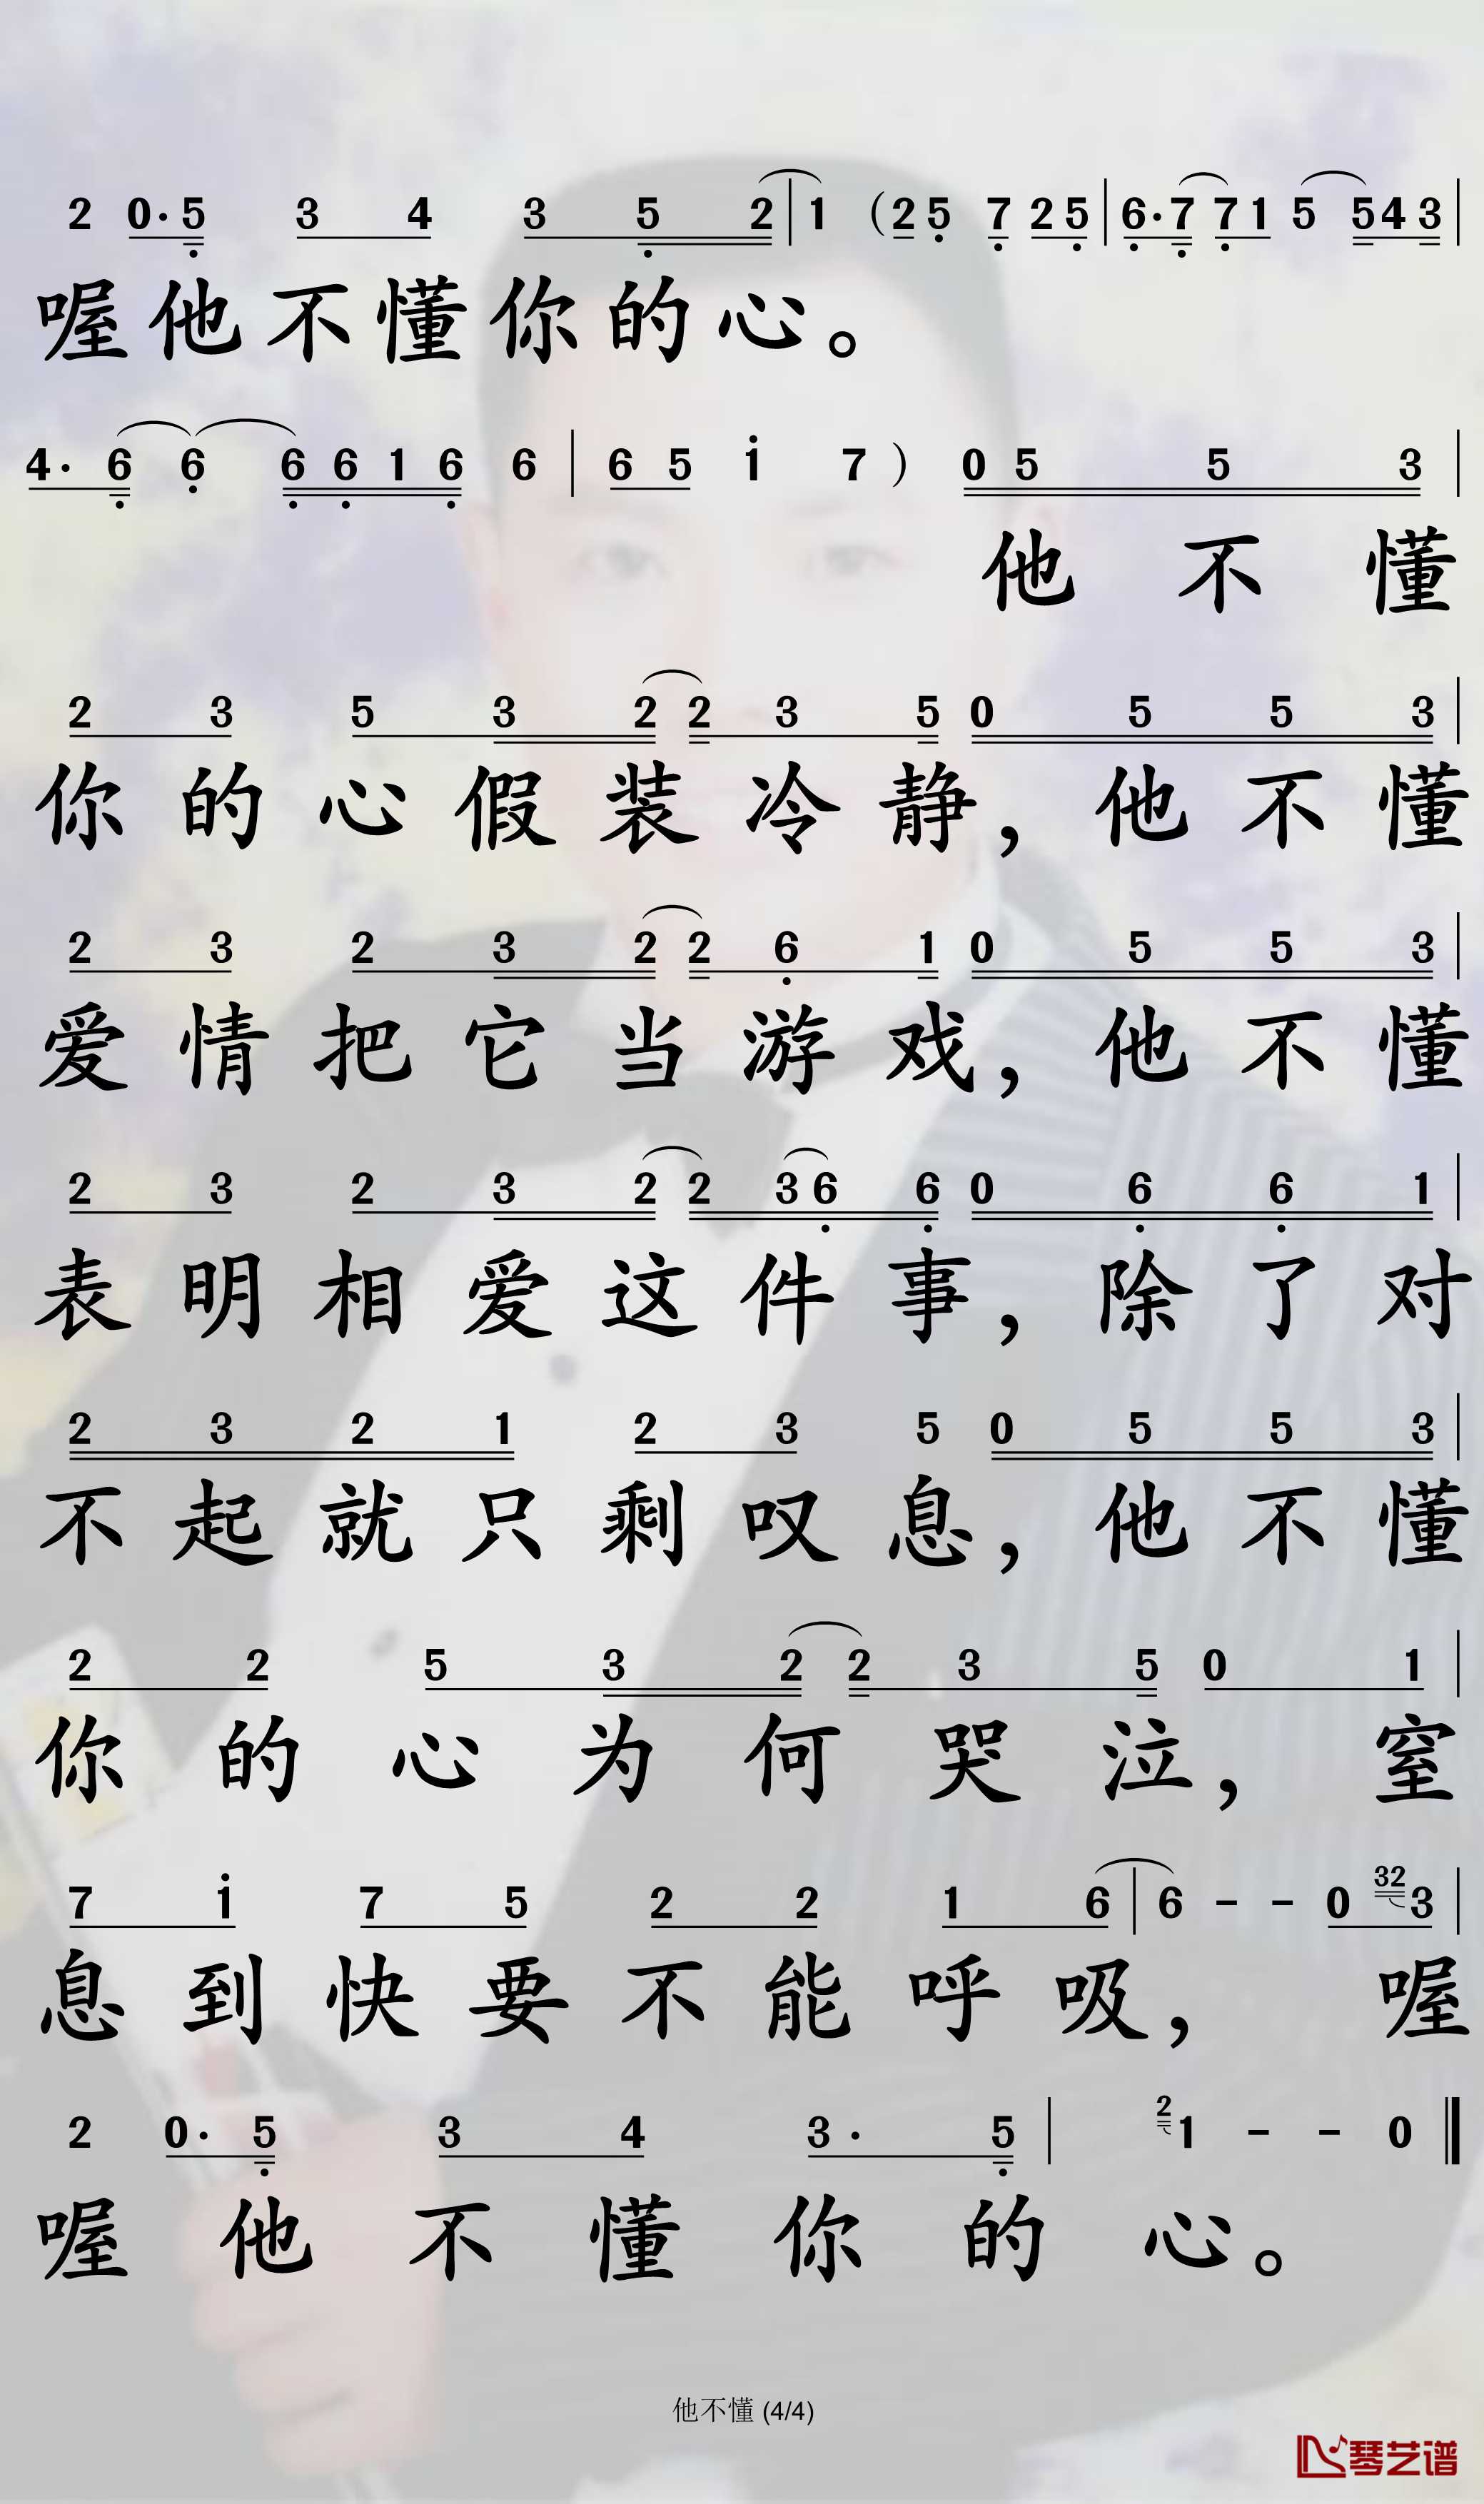 2 0· 5 3 4 3 5 2 | 1 (2 5 7 2 5 | 6· 7 7 1 5 5 4 3 |
喔他不懂你的心。
4· 6 6 6 6 1 6 6 | 6 5 1 7 ) 0 5 5 3 |
他不懂
2 3 5 3 2 2 3 5 0 5 5 3 |
你的心假装冷静，他不懂
2 3 2 3 2 2 6 1 0 5 5 3 |
爱情把它当游戏，他不懂
2 3 2 3 2 2 3 6 6 0 6 6 1 |
表明相爱这件事，除了对
2 3 2 1 2 3 5 0 5 5 3 |
不起就只剩叹息，他不懂
2 2 5 3 2 2 3 5 0 1 |
你的心为何哭泣，窒
7 1 7 5 2 2 1 6 | 6 - - 0 32 3 |
息到快要不能呼吸，喔
2 0· 5 3 4 3· 5 | 2 1 - - 0 ‖
喔他不懂你的心。
他不懂 (4/4)
琴艺谱